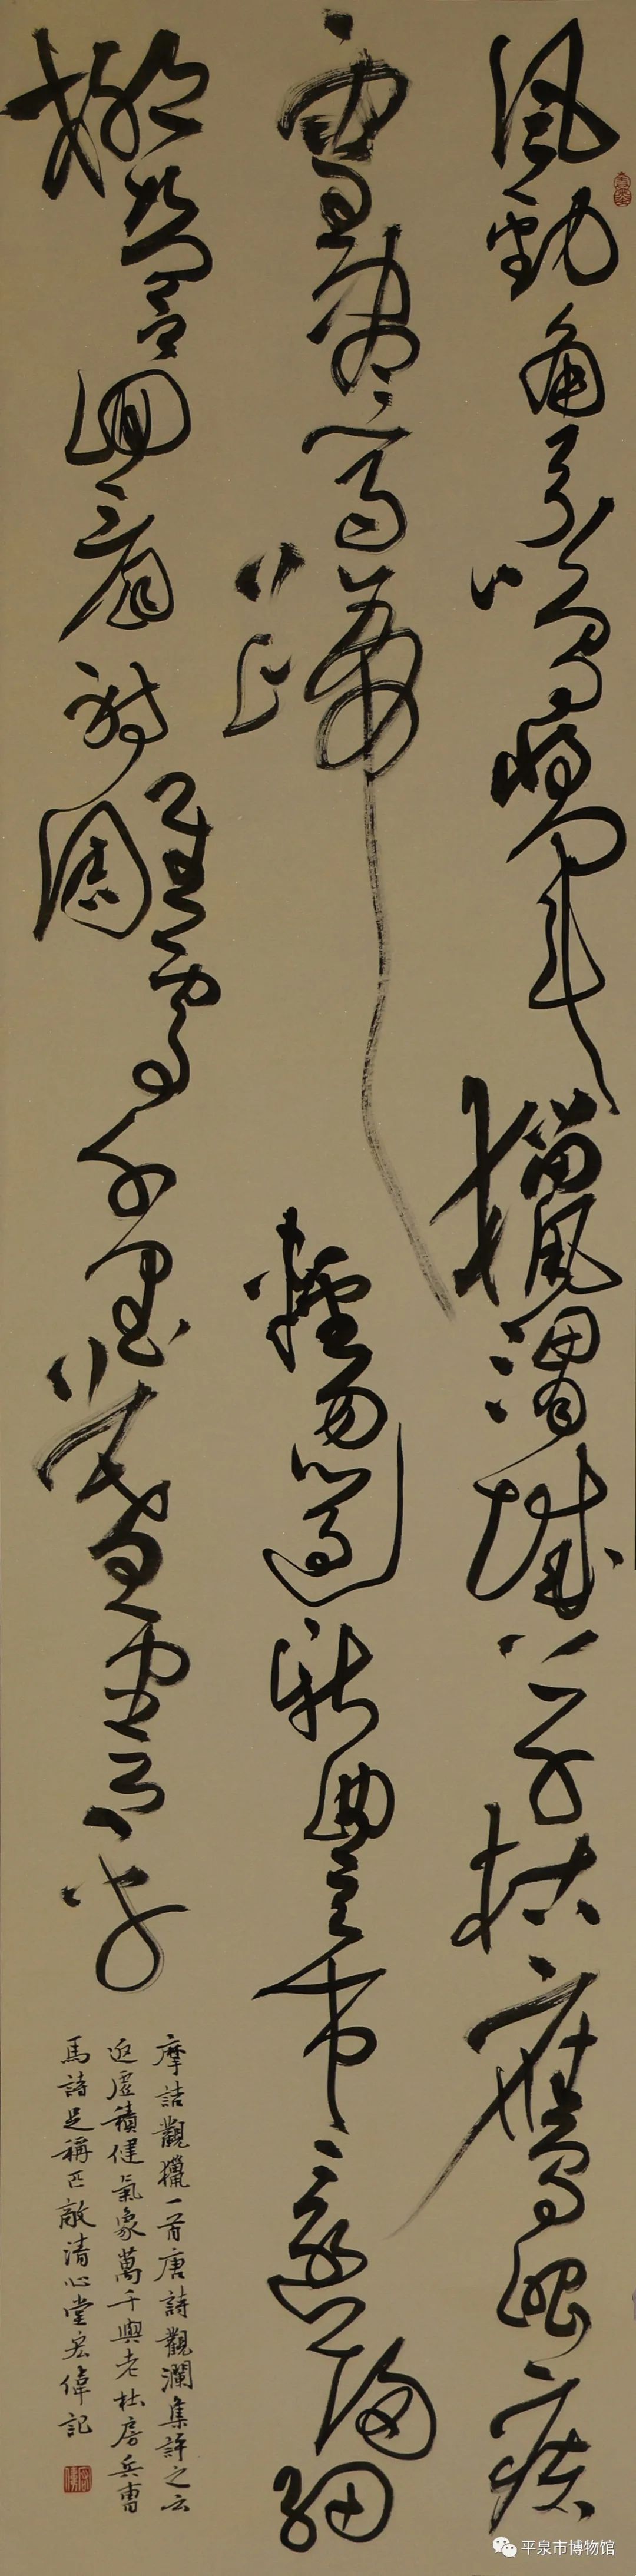 風勁角弓鳴將軍獵渭城草枯鷹眼疾
雪盡馬蹄輕忽過新豐市還歸細
柳營回看射雕處千里暮雲平
摩詰觀獵一首唐詩觀瀾集評之云
返虛積健氣象萬千與老杜房兵曹
馬詩足稱匹敵清心堂宏偉記
平泉市博物馆